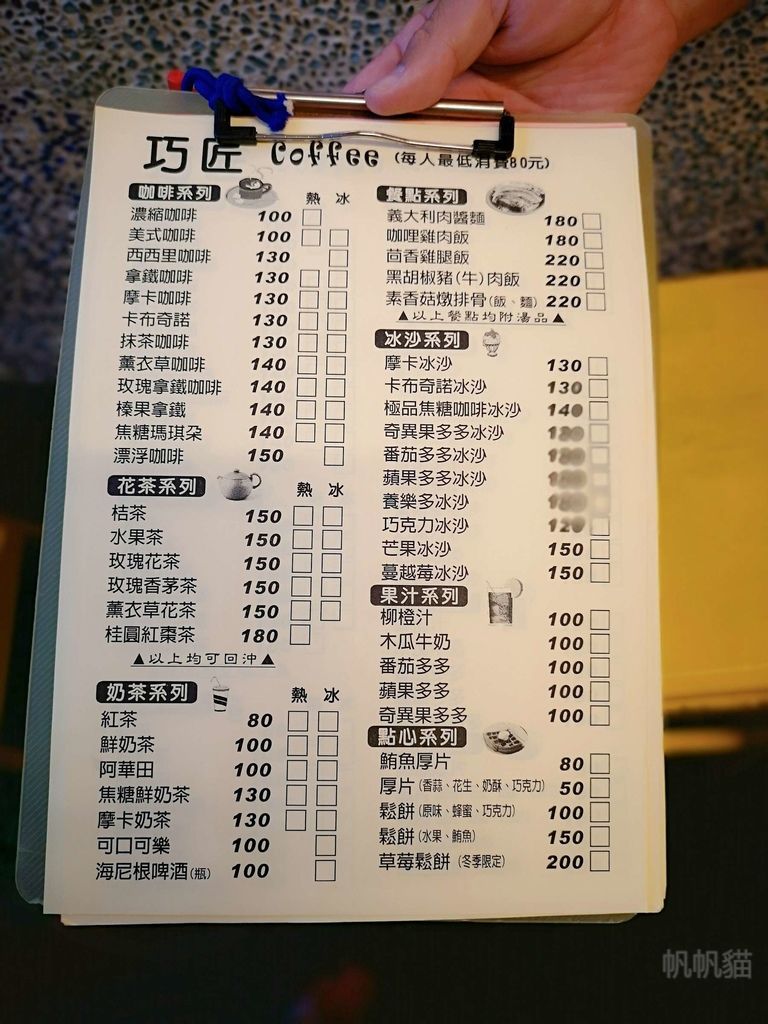 巧匠 Coffee (每人最低消費80元)
咖啡系列 熱 冰
濃縮咖啡 100
美式咖啡 100
西西里咖啡 130
拿鐵咖啡 130
摩卡咖啡 130
卡布奇諾 130
抹茶咖啡 130
薰衣草咖啡 140
玫瑰拿鐵咖啡 140
榛果拿鐵 140
焦糖瑪琪朶 140
漂浮咖啡 150
花茶系列 熱 冰
桔茶 150
水果茶 150
玫瑰花茶 150
玫瑰香茅茶 150
薰衣草花茶 150
桂圓紅棗茶 180
▲以上均可回沖▲
奶茶系列 熱 冰
紅茶 80
鮮奶茶 100
阿華田 100
焦糖鮮奶茶 130
摩卡奶茶 130
可口可樂 100
海尼根啤酒(瓶) 100
餐點系列
義大利肉醬麵 180
咖哩雞肉飯 180
茴香雞腿飯 220
黑胡椒豬(牛)肉飯 220
素香菇燉排骨(飯、麵) 220
▲以上餐點均附湯品▲
冰沙系列
摩卡冰沙 130
卡布奇諾冰沙 130
極品焦糖咖啡冰沙 140
奇異果多多冰沙
番茄多多冰沙
蘋果多多冰沙
養樂多冰沙
巧克力冰沙 120
芒果冰沙 150
蔓越莓冰沙 150
果汁系列
柳橙汁 100
木瓜牛奶 100
番茄多多 100
蘋果多多 100
奇異果多多 100
點心系列
鮪魚厚片 80
厚片(香蒜、花生、奶酥、巧克力) 50
鬆餅(原味、蜂蜜、巧克力) 100
鬆餅(水果、鮪魚) 150
草莓鬆餅(冬季限定) 200
帆帆貓